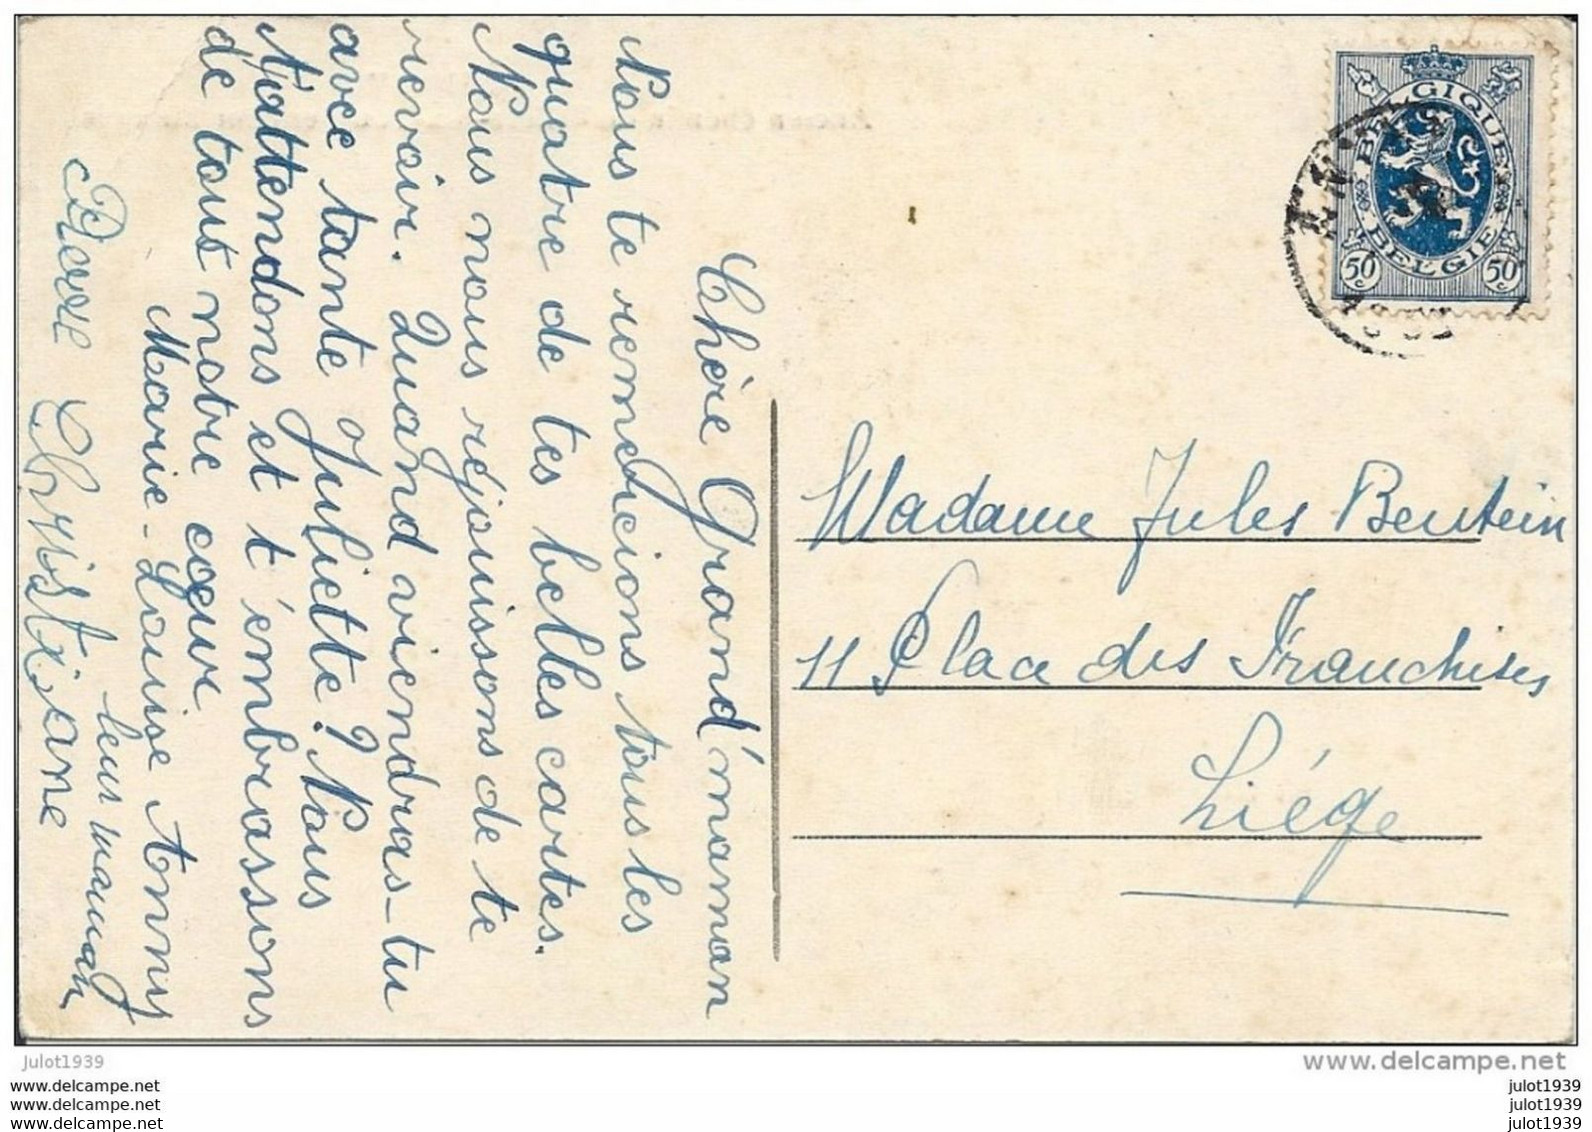 Chère Grand'maman
Nous te remercions tous les
quatre de tes belles cartes.
Nous nous réjouissons de te
revoir. Quand viendras-tu
avec tante Juliette? Nous
t'attendons et t'embrassons
de tout notre cœur
Marie-Louise Anny
leur maman
Christiane
BELGIQUE
BELGIE
50 c
50 c
Madame Jules Bentein
11 Place des Franchises
Liége
www.delcampe.net
julot1939
www.delcampe.net
www.delcampe.net
www.delcampe.net
julot1939
julot1939
julot1939